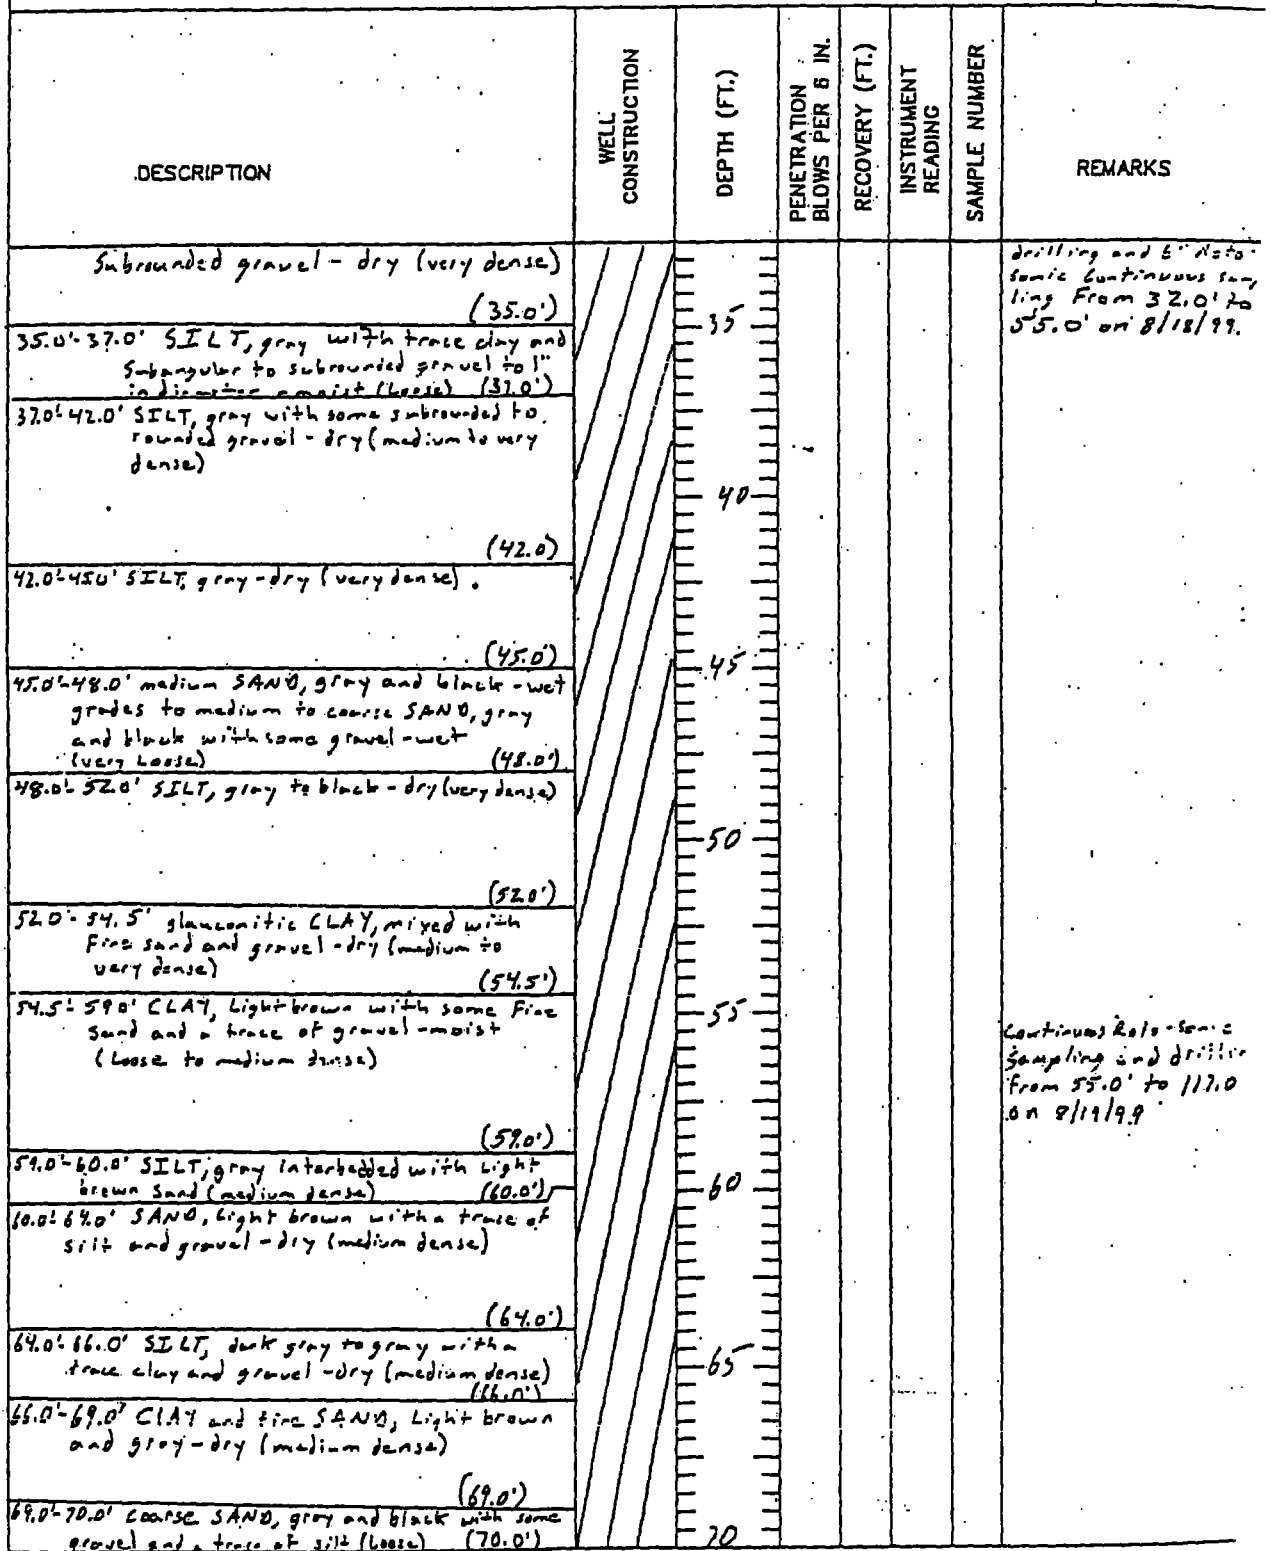 DESCRIPTION
WELL
CONSTRUCTION
DEPTH (FT.)
PENETRATION
BLOWS PER 6 IN.
RECOVERY (FT.)
INSTRUMENT
READING
SAMPLE NUMBER
REMARKS
Subrounded gravel - dry (very dense)
(35.0')
35.0'-37.0' SILT, gray with trace clay and
Subangular to subrounded gravel to 1"
in diameter - moist (Loose) (37.0')
37.0'-42.0' SILT, gray with some subrounded to
rounded gravel - dry (medium to very
dense)
(42.0)
42.0'-45.0' SILT, gray - dry (very dense).
(45.0')
45.0'-48.0' medium SAND, gray and black - wet
grades to medium to coarse SAND, gray
and black with some gravel - wet
(very Loose) (48.0')
48.0'-52.0' SILT, gray to black - dry (very dense)
(52.0')
52.0'-54.5' glauconitic CLAY, mixed with
Fine sand and gravel - dry (medium to
very dense) (54.5')
54.5'-59.0' CLAY, Light brown with some Fine
Sand and a trace of gravel - moist
(Loose to medium dense)
(59.0')
59.0'-60.0' SILT, gray interbedded with Light
brown Sand (medium dense) (60.0')
60.0'-64.0' SAND, Light brown with a trace of
silt and gravel - dry (medium dense)
(64.0')
64.0'-66.0' SILT, dark gray to gray with a
trace clay and gravel - dry (medium dense)
(66.0')
66.0'-69.0' CLAY and fine SAND, Light brown
and gray - dry (medium dense)
(69.0')
69.0'-70.0' coarse SAND, gray and black with some
gravel and a trace of silt (Loose) (70.0')
35
40
45
50
55
60
65
70
drilling and 6" Roto-
sonic Continuous samp
ling From 32.0' to
55.0' on 8/18/99.
Continuous Roto-Sonic
Sampling and drillin
From 55.0' to 117.0
on 8/19/99